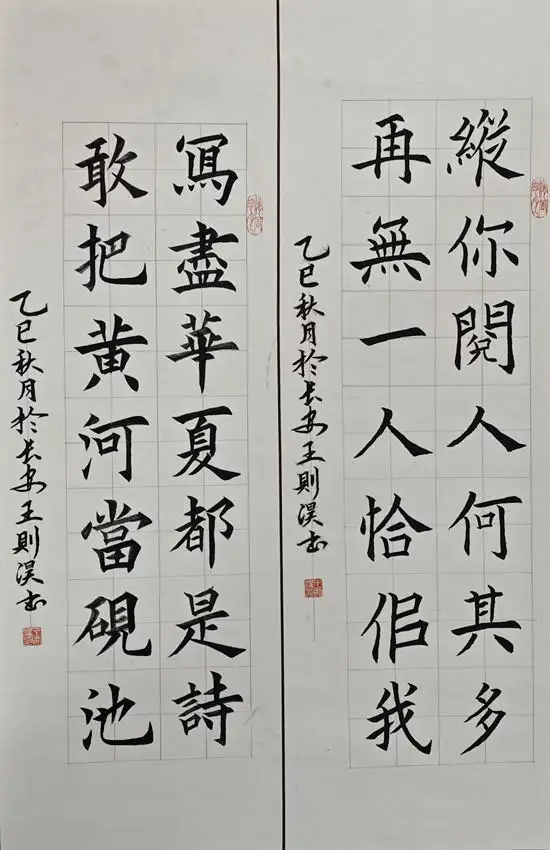 縱你閱人何其多
再無一人恰佀我
乙巳秋月於长安王則淏书
冩盡華夏都是詩
敢把黄河當硯池
乙巳秋月於长安王則淏书